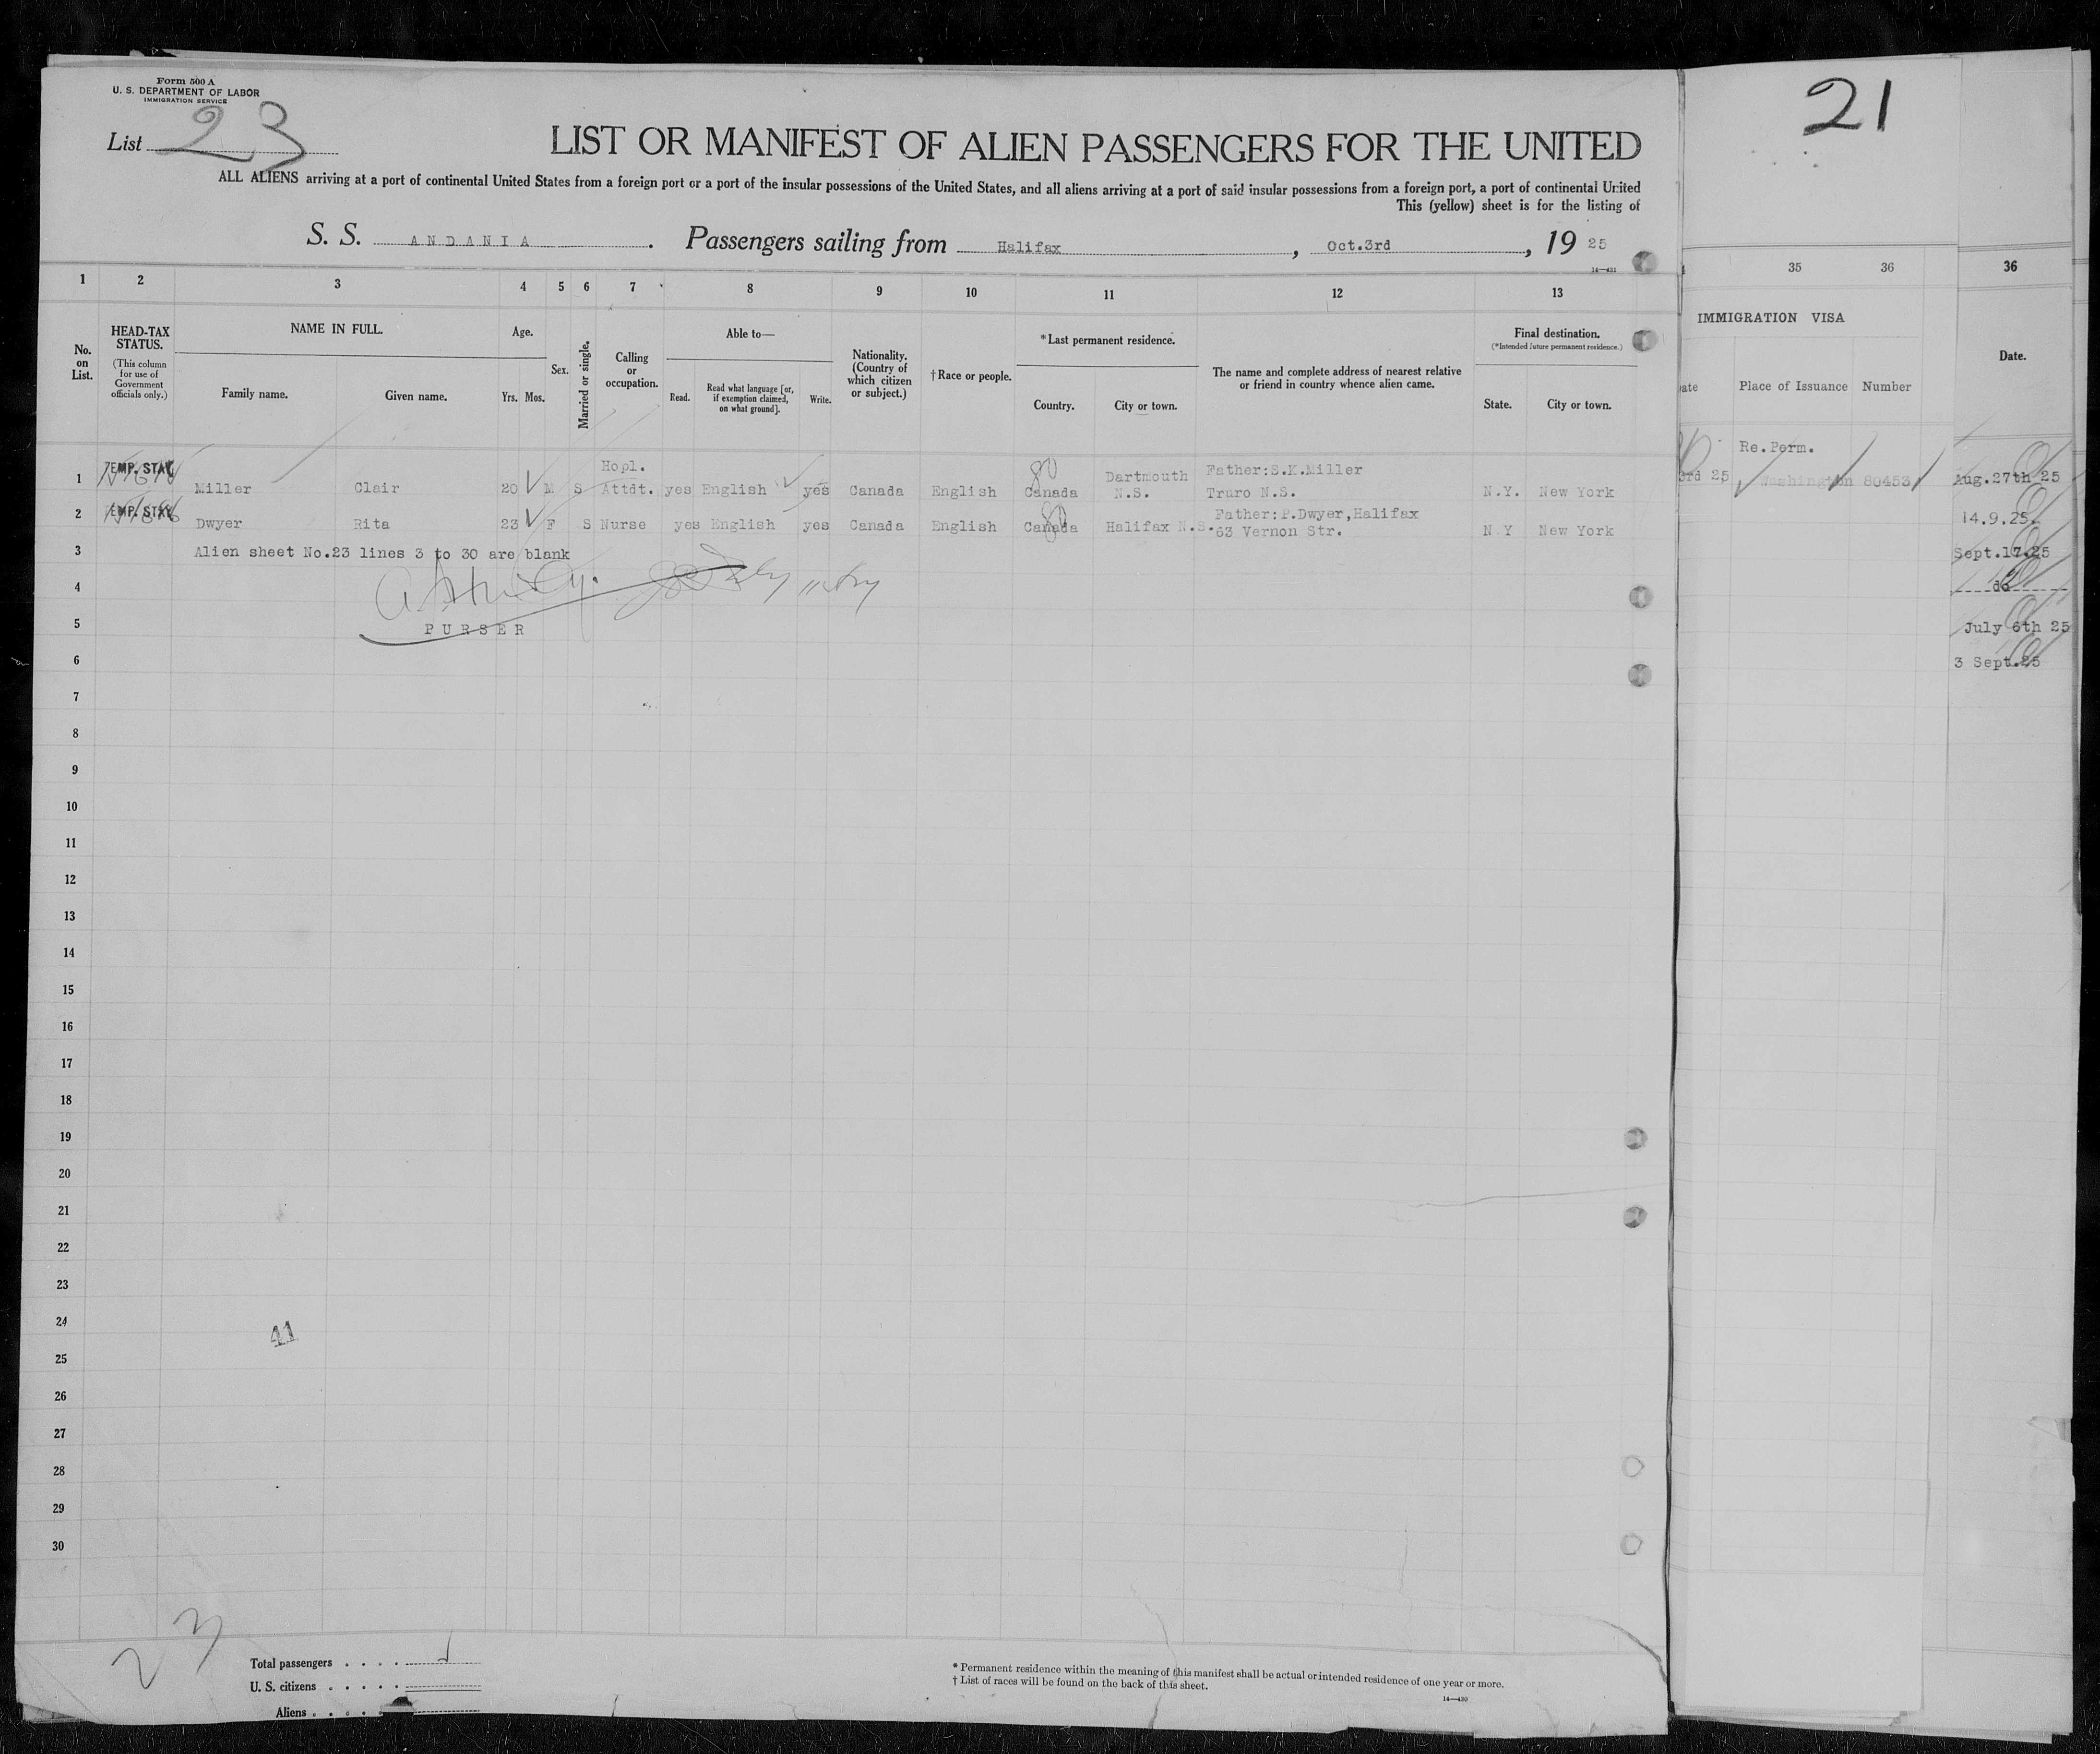 Form 500 A
U. S. DEPARTMENT OF LABOR
IMMIGRATION SERVICE
List 23
LIST OR MANIFEST OF ALIEN PASSENGERS FOR THE UNITED
ALL ALIENS arriving at a port of continental United States from a foreign port or a port of the insular possessions of the United States, and all aliens arriving at a port of said insular possessions from a foreign port, a port of continental United
This (yellow) sheet is for the listing of
S. S. ANDANIA. Passengers sailing from Halifax, Oct.3rd, 1925
14—431
1 2 3 4 5 6 7 8 9 10 11 12 13
No. on List.
HEAD-TAX STATUS.
(This column for use of Government officials only.)
NAME IN FULL.
Family name. Given name.
Age.
Yrs. Mos.
Sex.
Married or single.
Calling or occupation.
Able to—
Read. Read what language [or, if exemption claimed, on what ground]. Write.
Nationality. (Country of which citizen or subject.)
†Race or people.
*Last permanent residence.
Country. City or town.
The name and complete address of nearest relative or friend in country whence alien came.
Final destination.
(*Intended future permanent residence.)
State. City or town.
1 TEMP. STAY Miller Clair 20 M S Hopl. Attdt. yes English yes Canada English Canada Dartmouth N.S. Father:S.K.Miller Truro N.S. N.Y. New York
2 TEMP. STAY Dwyer Rita 23 F S Nurse yes English yes Canada English Canada Halifax N.S. Father:P.Dwyer,Halifax 63 Vernon Str. N Y New York
3 Alien sheet No.23 lines 3 to 30 are blank
4
5 PURSER
6
7
8
9
10
11
12
13
14
15
16
17
18
19
20
21
22
23
24
41
25
26
27
28
29
30
23
Total passengers
U. S. citizens
Aliens
* Permanent residence within the meaning of this manifest shall be actual or intended residence of one year or more.
† List of races will be found on the back of this sheet.
14—430
21
35 36
IMMIGRATION VISA
Place of Issuance Number
Re.Perm.
3rd 25 Washington 80453
36
Date.
Aug.27th 25
14.9.25
Sept.17.25
do
July 6th 25
3 Sept.25